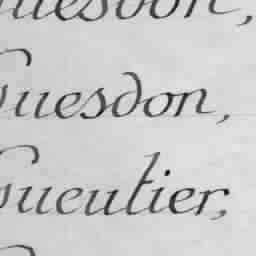 Guesdon,
Guesdon,
Gueutier,